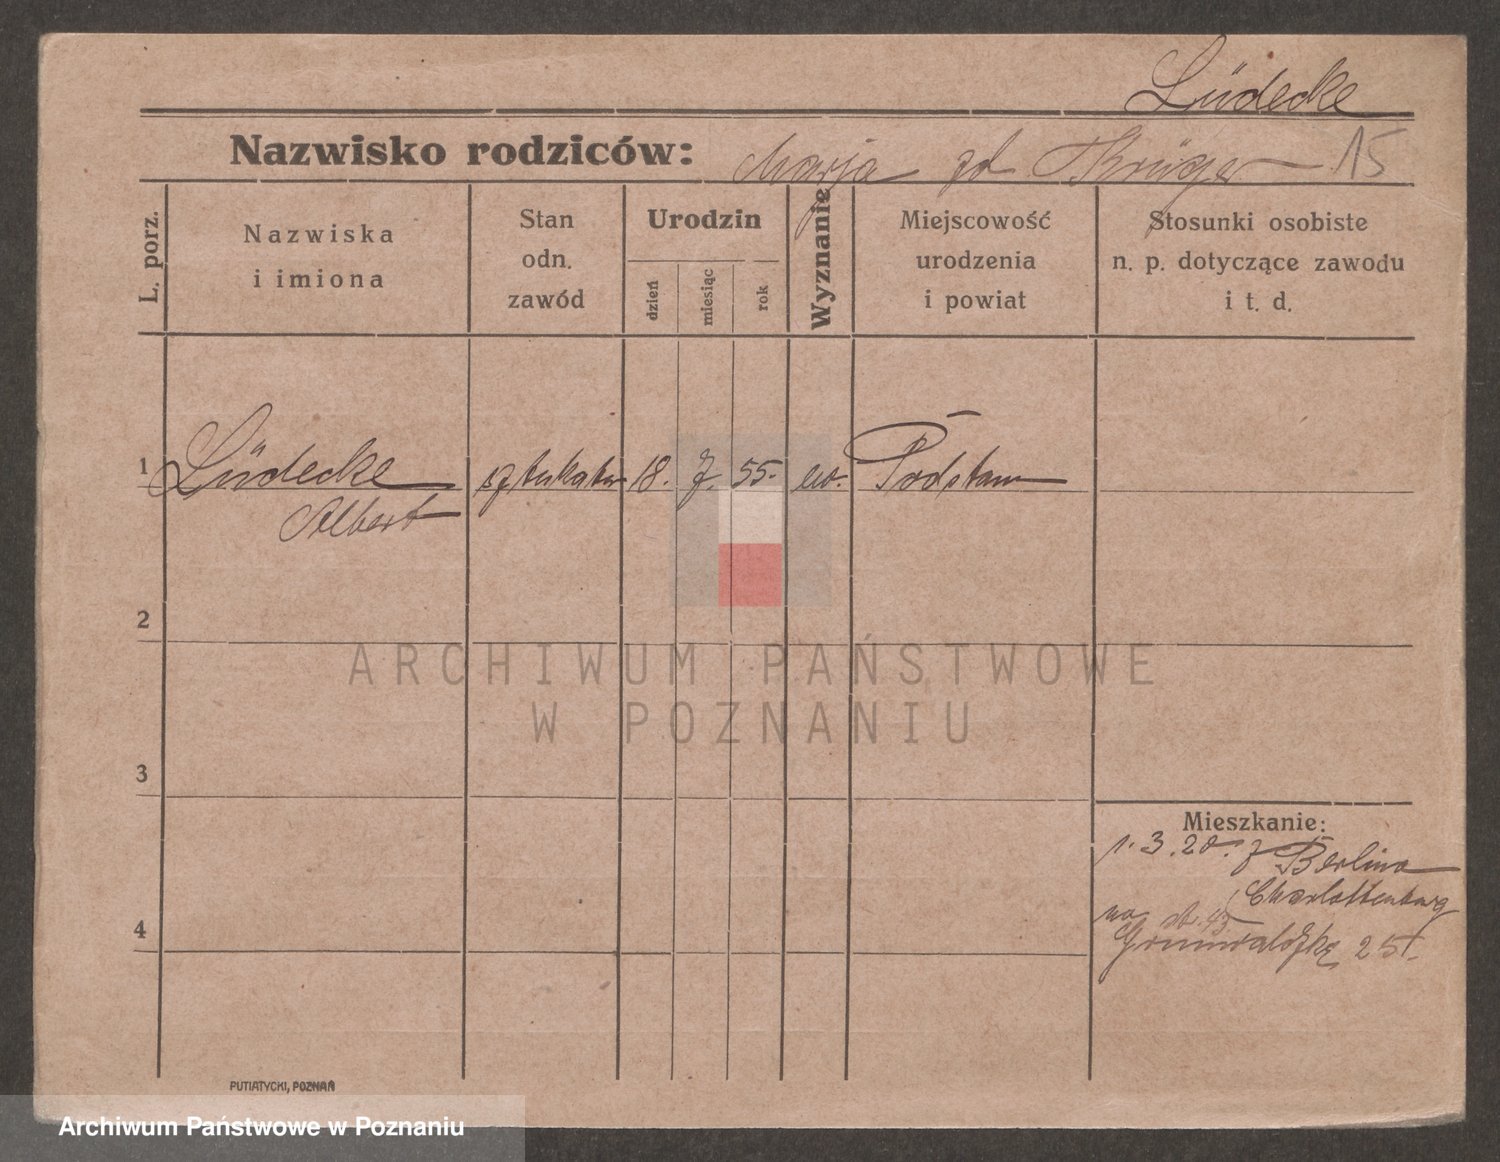 Lüdecke
Nazwisko rodziców: Marja zd Krüger 15
L. porz.
Nazwiska
i imiona
Stan
odn.
zawód
Urodzin
dzień
miesiąc
rok
Wyznanie
Miejscowość
urodzenia
i powiat
Stosunki osobiste
n. p. dotyczące zawodu
i t. d.
1 Lüdecke sztukator 18. 7. 55. ew.
Albert
2
3
4
ARCHIWUM PAŃSTWOWE
W POZNANIU
Mieszkanie:
1.3.20. z Berlina
Charlottenburg
na
Grunwaldzkę 25
PUTIATYCKI, POZNAŃ
Archiwum Państwowe w Poznaniu